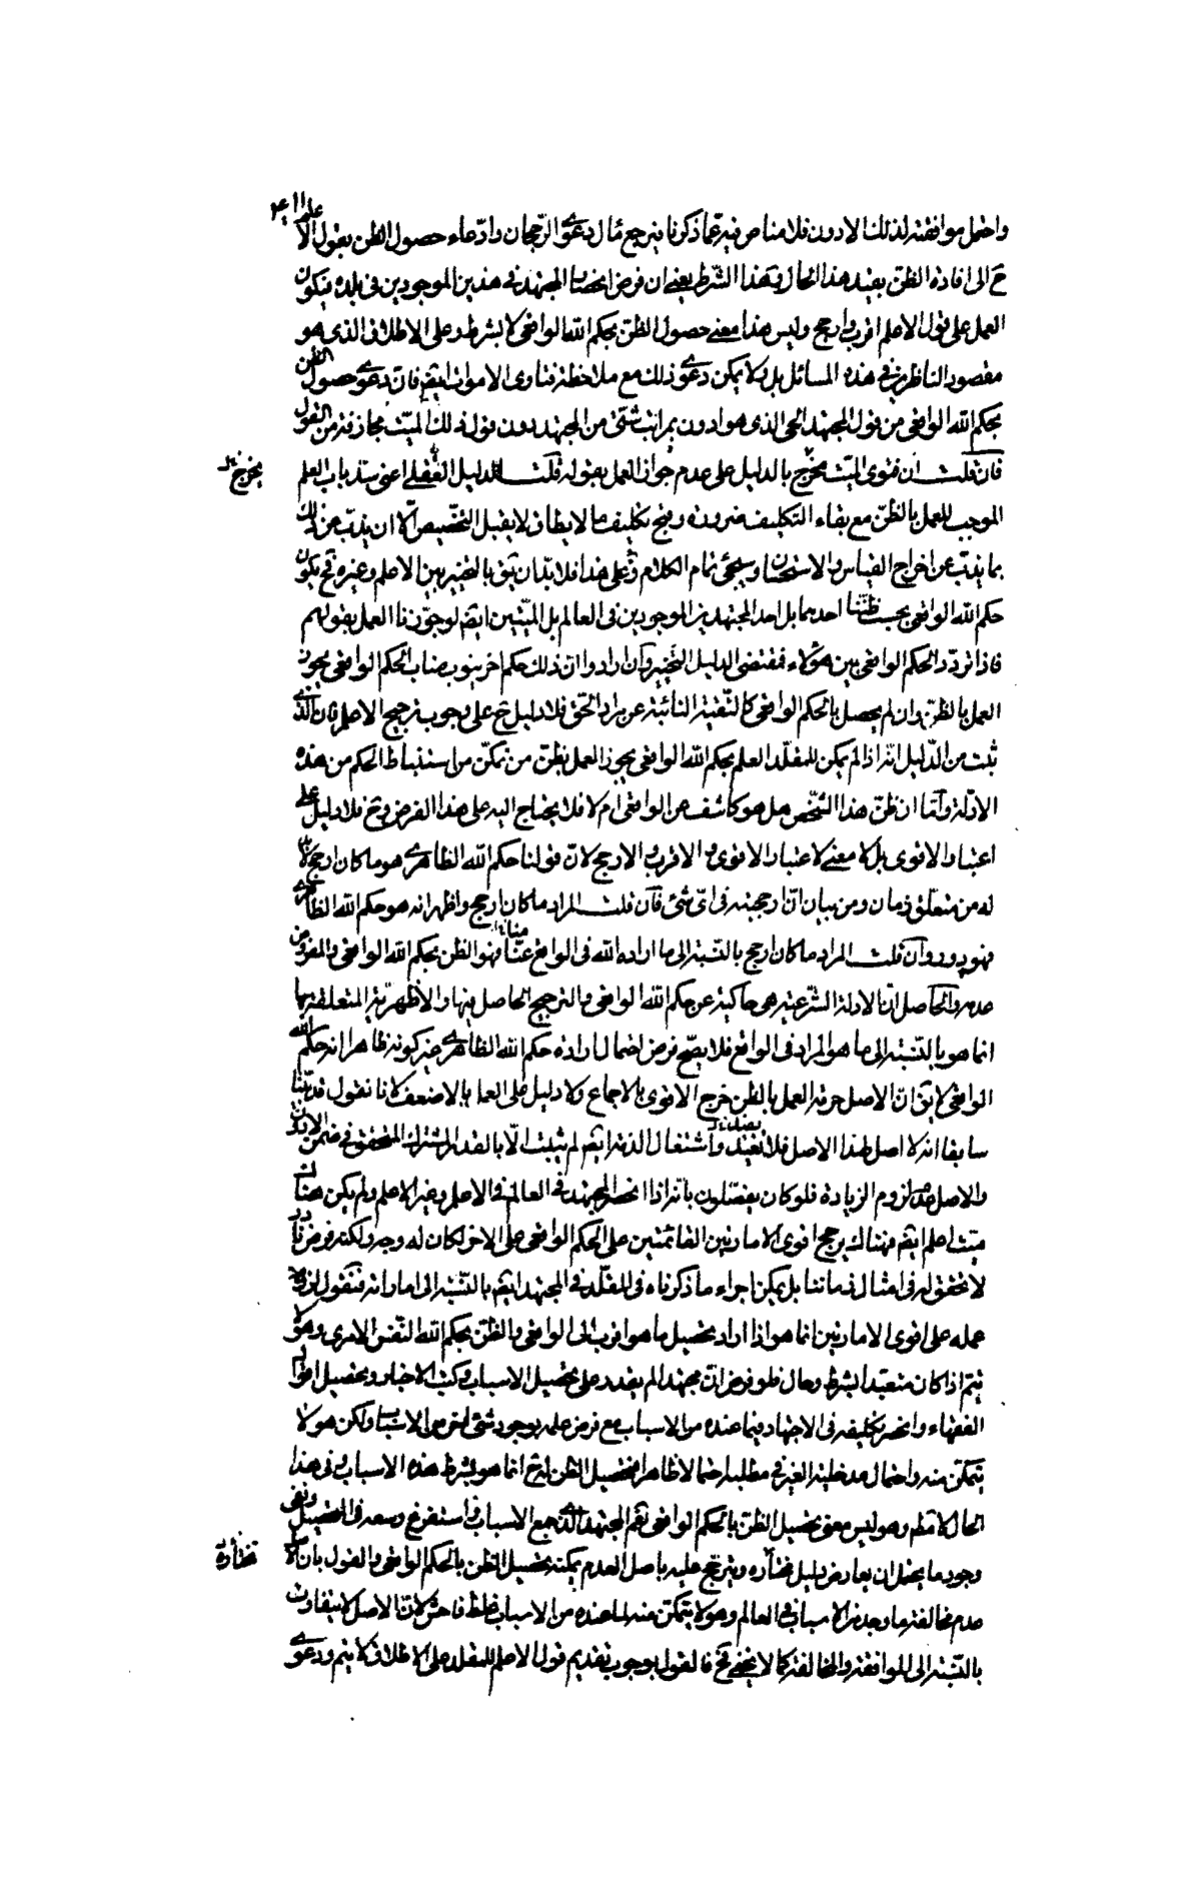 واحتمل موافقته لذلك الادون فلا مناص فيه عما ذكرنا فيرجع مآل دعوى الرجحان وادعاء حصول الظن بقول الاعلم
ح الى افادة الظن بقيد هذا الحال وبهذا الشرط يعنى ان فرض انحصار المجتهد فى هذين الموجودين فى بلده فيكون
العمل على قول الاعلم اقرب وارجح وليس هذا معنى حصول الظن بحكم الله الواقعى لا بشرط وعلى الاطلاق الذى هو
مقصود الناظرين فى هذه المسائل بل ولا يمكن دعوى ذلك مع ملاحظة فتاوى الاموات ايضا فان دعوى حصول الظن
بحكم الله الواقعى من قول المجتهد الحى الذى هو ادون بمراتب شتى من المجتهد دون قول ذلك الميت مجازفة من القول
فان قلت ان فتوى الميت مخرج بالدليل على عدم جواز العمل بقوله قلت الدليل العقلى اعنى سد باب العلم
الموجب للعمل بالظن مع بقاء التكليف ضرورة وقبح تكليف ما لا يطاق لا يقبل التخصيص الا ان يذب عن ذلك
بما يذب عن اخراج القياس والاستحسان وسيجئ تمام الكلام وعلى هذا فلا بد ان يق بالتخيير بين الاعلم وغيره فح يكون
حكم الله الواقعى بحسب ظننا احدهما بل احد المجتهدين الموجودين فى العالم بل الميتين ايضا لو جوزنا العمل بقولهم
فاذا تردد الحكم الواقعى بين هؤلاء فمقتضى الدليل التخيير وان ارادوا ان ذلك حكم اخر ينوب مناب الحكم الواقعى يجوز
العمل بالظن به وان لم يحصل بالحكم الواقعى كالتقية النائبة عن مراد الحق فلا دليل ح على وجوب ترجيح الاعلم فان الذى
ثبت من الدليل انه اذا لم يمكن للمقلد العلم بحكم الله الواقعى يجوز العمل بظن من تمكن من استنباط الحكم من هذه
الادلة واما ان ظن هذا الشخص هل هو كاشف عن الواقعى ام لا فلا يحتاج اليه على هذا الفرض وح فلا دليل على
اعتبار الاقوى بل لا معنى لاعتبار الاقوى والاقرب والارجح لان قولنا حكم الله الظاهرى هو ما كان ارجح لا بد
له من متعلق زمان ومن بيان ان ارجحيته فى اى شئ فان قلت المراد ما كان ارجح واظهر انه هو حكم الله الظاهرى
فهو دور وان قلت المراد ما كان ارجح بالنسبة الى ما اراده الله فى الواقع عنا منا فهو الظن بحكم الله الواقعى والمفروض
عدمه والحاصل ان الادلة الشرعية هى حاكية عن حكم الله الواقعى والترجيح الحاصل فيها والاظهرية المتعلقة بها
انما هو بالنسبة الى ما هو المراد فى الواقع فلا يصح فرض احتمال ارادة حكم الله الظاهرى غير كونه ظاهرا انه حكم الله
الواقعى لا يق ان الاصل حرمة العمل بالظن خرج الاقوى بالاجماع ولا دليل على العمل بالاضعف لانا نقول قد بينا
سابقا انه لا اصل لهذا الاصل فلا نعيد واشتغال الذمة ايضا لم يثبت الا بالقدر المشترك المتحقق فى ضمن الادون
والاصل عدم لزوم الزيادة فلو كان يفصلون بانه اذا انحصر المجتهد فى العالم فى الاعلم وغير الاعلم ولم يكن هناك
ميت اعلم ايضا فهناك يرجح اقوى الامارتين القائمتين على الحكم الواقعى على الاخر لكان له وجه ولكنه فرض نادر
لا تحقق له فى امثال زماننا بل يمكن اجراء ما ذكرناه فى المقلد فى المجتهد ايضا بالنسبة الى اماراته فنقول لزوم
عمله على اقوى الامارتين انما هو اذا اراد تحصيل ما هو اقرب الى الواقعى والظن بحكم الله النفس الامرى وهو لا
يتم اذا كان متعبدا بشرط وحال فلو فرض ان مجتهدا لم يقدر على تحصيل الاسباب وكتب الاخبار وتحصيل اقوال
الفقهاء وانحصر تكليفه فى الاجتهاد فيما عنده من الاسباب مع فرض علمه بوجود شئ اخر من الاسباب ولكن هو لا
يتمكن منه واحتمال مدخلية الغير فى مطلبه احتمالا ظاهرا فتحصيل الظن له ح انما هو بشرط هذه الاسباب وفى هذا
الحال لا مطلقا وهو ليس معنى تحصيل الظن بالحكم الواقعى نعم المجتهد الذى جمع الاسباب واستفرغ وسعه فى التحصيل ونفى
وجود ما يحتمل ان يعارض دليل مختاره ويترجح عليه باصل العدم يمكنه تحصيل الظن بالحكم الواقعى والقول بان الاصل
عدم مخالفة ما وجد من الاسباب فى العالم وهو لا يتمكن منه لما عنده من الاسباب غلط فاحش لان الاصل لا يتفاوت
بالنسبة الى الموافقة والمخالفة كما لا يخفى فح فالقول بوجوب تقديم قول الاعلم للمقلد على الاطلاق لا يتم ودعوى